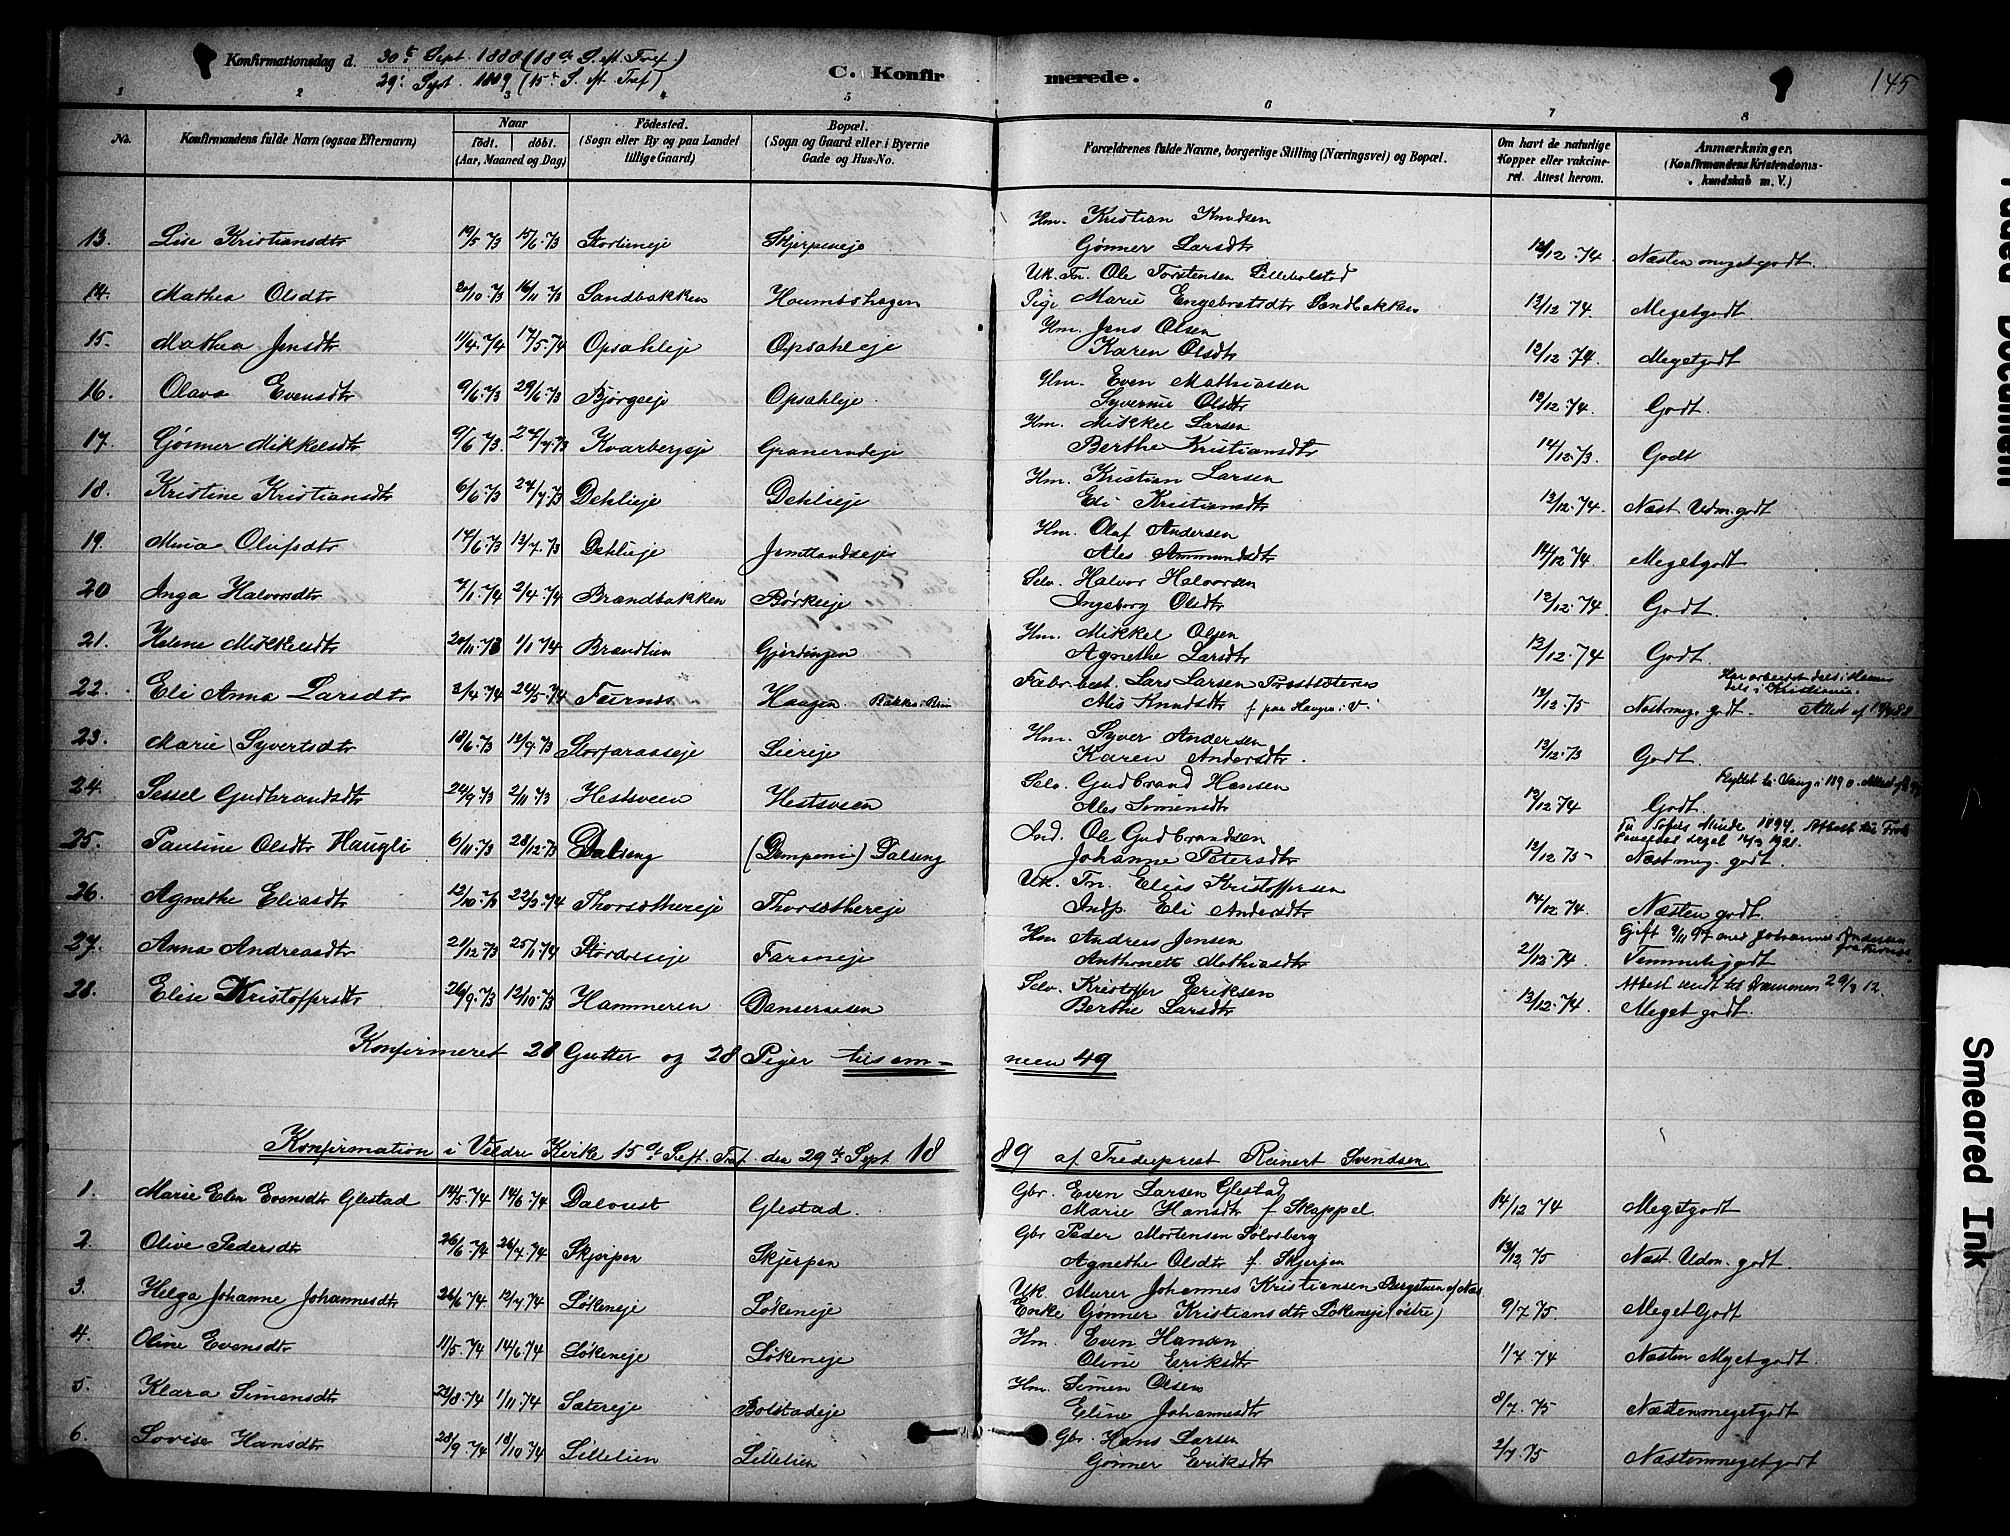 Konfirmationsdag d. 30t Sept. 1888 (18de S. e. Tref)
29: Sept. 1889 (15de S. e. Tref)
C. Konfirmerede.
145
1 2 3 4 5 6 7 8
No. Konfirmandens fulde Navn (ogsaa Efternavn) Naar født. døbt. (Aar, Maaned og Dag) Fødested. (Sogn eller By og paa Landet tillige Gaard) Bopæl. (Sogn og Gaard eller i Byerne Gade og Hus-No. Forældrenes fulde Navne, borgerlige Stilling (Næringsvei) og Bopæl. Om havt de naturlige Kopper eller vakcineret. Attest herom. Anmærkninger. (Konfirmandens Kristendomskundskab m. V.)
13. Lise Kristiansdtr 19/5.73 15/6.73 Storlieneje Skjerpeneje Hm. Kristian Knudsen
Gønner Larsdtr 12/12.74 Næsten megetgodt.
14. Mathea Olsdtr 20/10.73 16/11.73 Sandbakken Haumbshagen Uk. Tn. Ole Torstensen Lillebolstad
Pige Marie Engebretsdtr Sandbakken 13/12 74 Megetgodt.
15. Mathea Jensdtr 11/4.74 17/5.74 Opsahleje Opsahleje Hm. Jens Olsen
Karen Olsdtr 12/12.74. Megetgodt
16. Olava Evensdtr 9/6.73 29/6.73 Bjørgeeje Opsahleje Hm. Even Mathiassen
Syverine Olsdtr 12/12.74. Godt.
17. Gønner Mikkelsdtr 9/6.73 27/7.73 Kvarbergseje Granerudeje Hm. Mikkel Larsen
Berthe Kristiansdtr 14/12.73. Godt
18. Kristine Kristiansdtr 6/6.73 27/7.73 Dehlieje Dehlieje Hm. Kristian Larsen
Eli Kristiansdtr 12/12.74. Næst Udm. godt
19. Mina Olufsdtr 14/6.73 13/7.73 Dehlieje Jemtlandseje Hm. Oluf Andersen
Ales Ammundsdtr 14/12 74. Megetgodt.
20 Inga Halvorsdtr 7/1.74 2/4.74 Brandbakken Børkeeje Selv. Halvor Halvorsen
Ingeborg Olsdtr 12/12.74 Godt.
21. Helene Mikkelsdtr 20/11.73 1/1 74 Brandlien Gjørdingen Hm. Mikkel Olsen
Agnethe Larsdtr 12/12.74 Godt.
22. Eli Anna Larsdtr 2/4 74 24/5.74 Furnes Haagen Fabr. best. Lars Larsen
Ales Knudsdtr 12/12.75 Næst meg. godt.
23. Marie Syvertsdtr 18/6.73 12/9.73 Storfaraaseje Liereje Hm. Syver Andersen
Karen Andersdtr. 12/12.73 Godt.
24. Sessel Gudbrandsdtr 24/9.73 2/11 73 Hestsveen Hestsveen Selv. Gudbrand Hansen Flyttet til Vang i 1890.
Ales Simensdtr 12/12 74 Godt.
25. Pauline Olsdtr Haugli 6/11.73 28/12.73 Dalseng (Dempeni) Dalseng Ind. Ole Gudbrandsen
Johanne Petersdtr 12/12 75 Næst meg. godt.
26. Agnethe Eliasdtr 12/10.73 22/3.74 Thorsøthereje Thorsøthereje Uk. Tn. Elias Kristoffersen
Indp. Eli Andersdtr 14/12 74. Næsten godt.
27. Anna Andreasdtr 21/12.73 25/1.74 Størdeseje Faraneje Hm Andreas Jensen Gift 9/11 97 med Johannes Andersen
Anthonette Mathiasdtr 21/12.74 Temmeligodt
28. Elise Kristoffersdtr 26/9.73 12/10.73 Hammeren Danseraasen Selv. Kristoffer Eriksen Attest sendt til Drammen 29/3 12.
Berthe Larsdtr 13/12.74 Megetgodt.
Konfirmeret 28 Gutter og 28 Piger tilsammen 49
Konfirmation i Veldre Kirke 15de S. eft. Tref. den 29de Sept 1889 af Frederprest Reinert Svendsen
1. Marie Elen Evensdtr Glestad 14/5.74 14/6.74 Dalvest Glestad. Gbr. Even Larsen Glestad
Marie Hansdtr f. Skappel 14/12 74 Megetgodt
2. Olive Pedersdtr 26/6.74 26/7.74 Skjerpen Skjerpen Gbr Peder Mortensen Solvsberg
Agnethe Olsdtr f. Skjerpen 13/12 75 Næst Udm. godt.
3. Helga Johanne Johannesdtr 26/6 74 12/7.74 Løkeneje Løkeneje Uk. Murer Johannes Kristiansen Bergstuen af Næs
Enke Gønner Kristiansdtr Løkeneje (østre) 9/7 75. Meget Godt.
4. Oline Evensdtr 11/5.74 14/6.74 Løkeneje Løkeneje Hm. Even Hansen
Oline Eriksdtr 1/7 74 Næsten Megetgodt.
5. Klara Simensdtr 23/8.74 1/11.74 Sætereje Bolstadeje Hm. Simen Olsen
Eline Johannesdtr 8/7.75 Næstenmegetgodt
6. Lovise Hansdtr 28/9.74 18/10.74 Lillelien Lillelien Gbr. Hans Larsen
Gønner Eriksdtr 2/7.75 Næstenmegetgodt
Faded Document
Smeared Ink